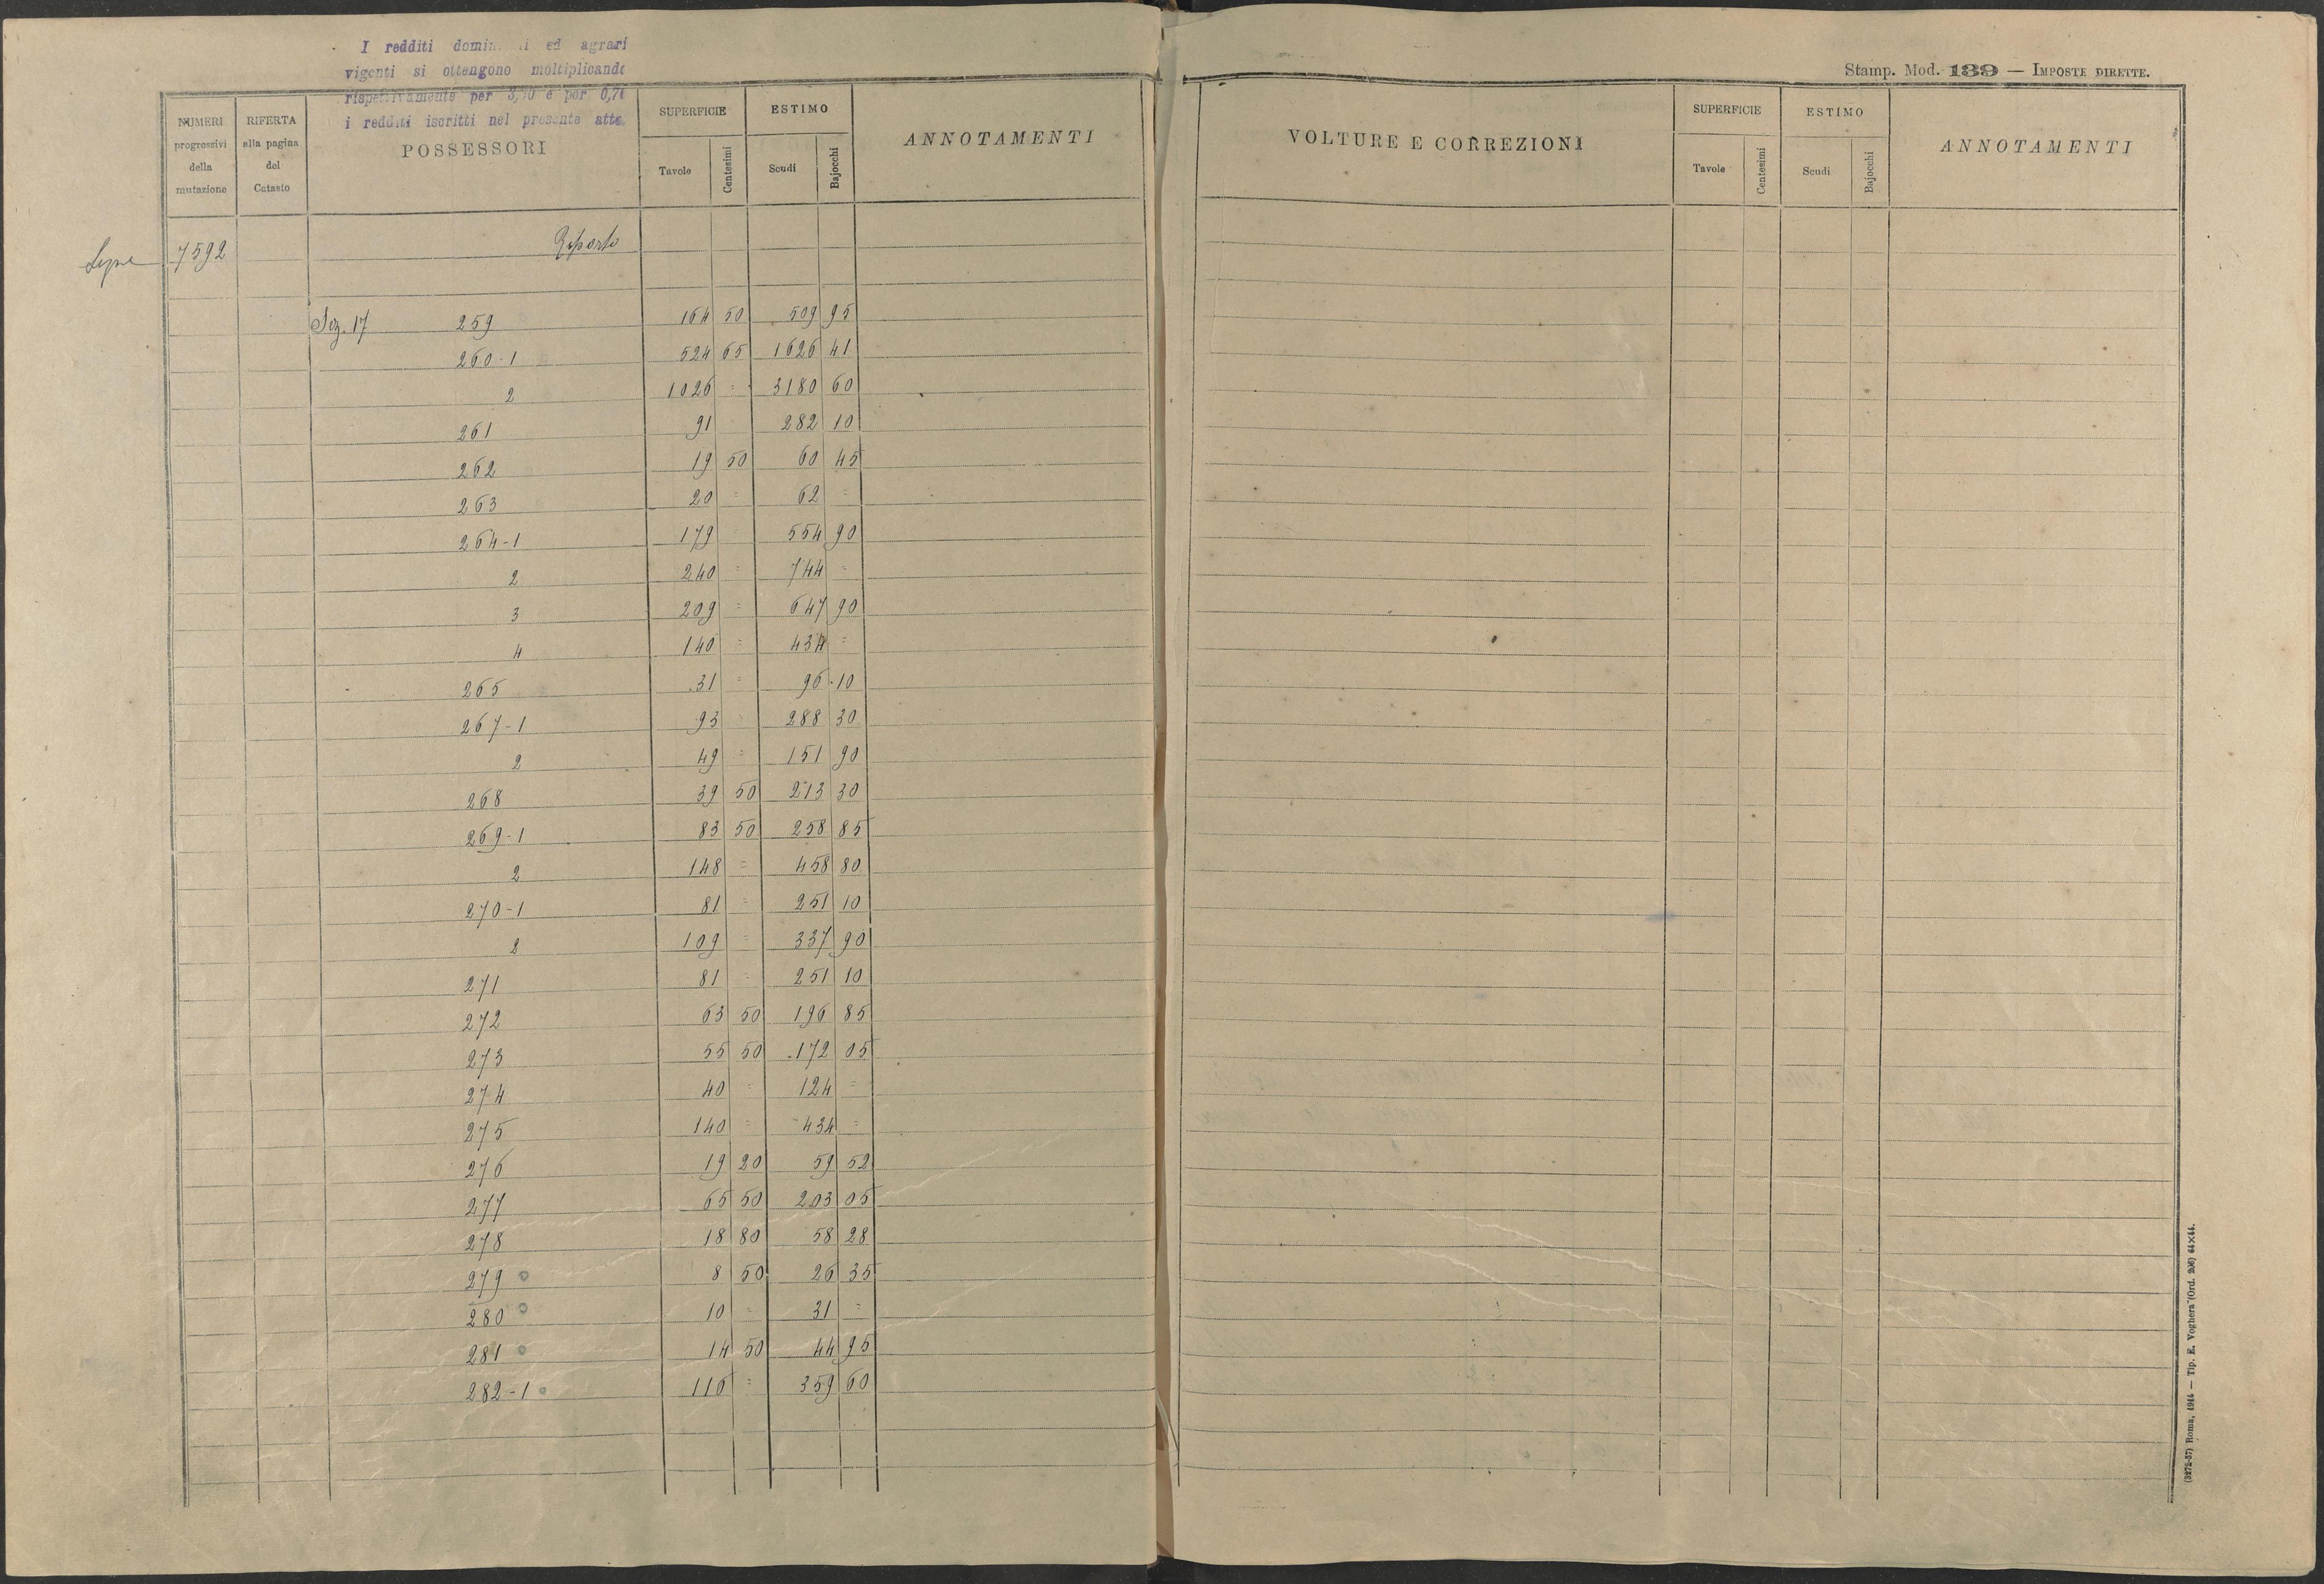 I redditi ed agrari
vigenti si ottengono moltiplicando
rispettivamente per e per
i redditi iscritti nel presente atto
NUMERI progressivi della mutazione
RIFERTA alla pagina del Catasto
POSSESSORI
SUPERFICIE
Tavole Centesimi
ESTIMO
Scudi Bajocchi
ANNOTAMENTI
Segue 7592 Riporto
Sez. 17 259 164 50 509 95
260-1 524 65 1626 41
2 1026 = 3180 60
261 91 282 10
262 19 50 60 45
263 20 = 62 =
264-1 179 554 90
2 240 = 744 =
3 209 = 647 90
4 140 = 434 =
265 31 = 96 10
267-1 93 288 30
2 49 = 151 90
268 39 50 213 30
269-1 83 50 258 85
2 148 = 458 80
270-1 81 = 251 10
2 109 = 337 90
271 81 = 251 10
272 63 50 196 85
273 55 50 172 05
274 40 = 124 =
275 140 = 434 =
276 19 20 59 52
277 65 50 203 05
278 18 80 58 28
279 8 50 26 35
280 10 = 31 =
281 14 50 44 95
282-1 116 = 359 60
Stamp. Mod. 139 — IMPOSTE DIRETTE.
VOLTURE E CORREZIONI
SUPERFICIE
Tavole Centesimi
ESTIMO
Scudi Bajocchi
ANNOTAMENTI
(3272-57) Roma, 1914 — Tip. E. Voghera (Ord. 206) 64×44.